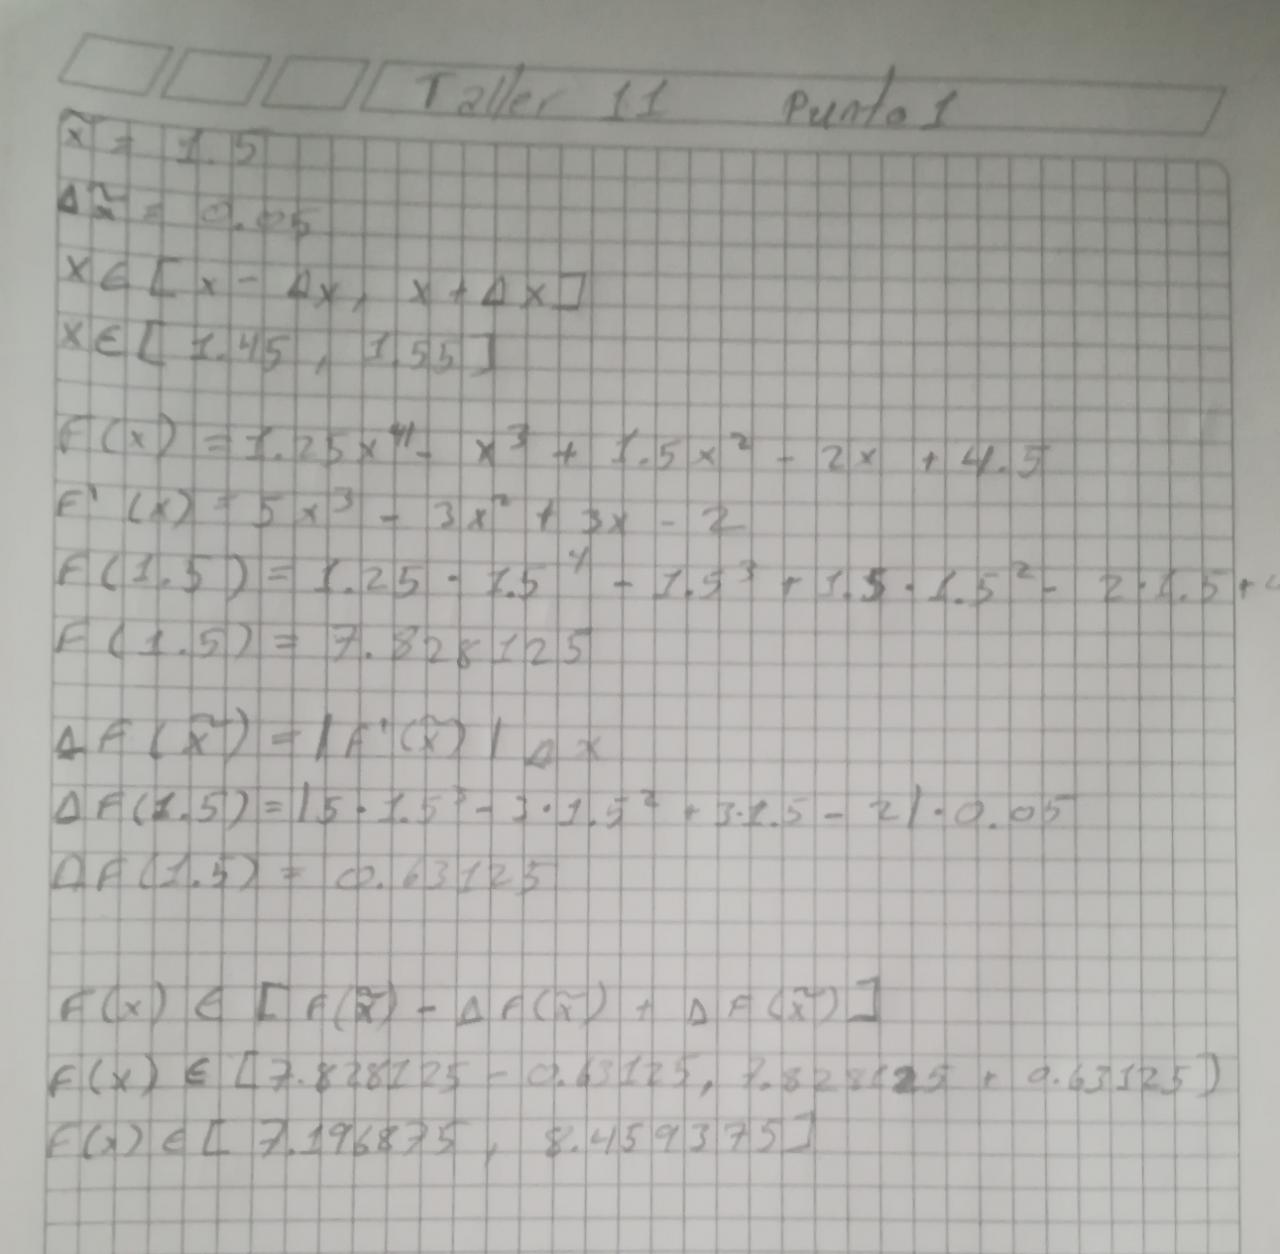 Taller 11 Punto 1
x̃ = 1.5
Δx̃ = 0.05
x ∈ [x - Δx, x + Δx]
x ∈ [1.45, 1.55]
F(x) = 1.25x⁴ - x³ + 1.5x² - 2x + 4.5
F'(x) = 5x³ - 3x² + 3x - 2
F(1.5) = 1.25 · 1.5⁴ - 1.5³ + 1.5 · 1.5² - 2·1.5 +
F(1.5) = 7.828125
ΔF(x̃) = |F'(x̃)| Δx
ΔF(1.5) = |5 · 1.5³ - 3·1.5² + 3·1.5 - 2|·0.05
ΔF(1.5) = 0.63125
F(x) ∈ [F(x̃) - ΔF(x̃) + ΔF(x̃)]
F(x) ∈ [7.828125 - 0.63125, 7.828125 + 0.63125]
F(x) ∈ [7.196875, 8.459375]